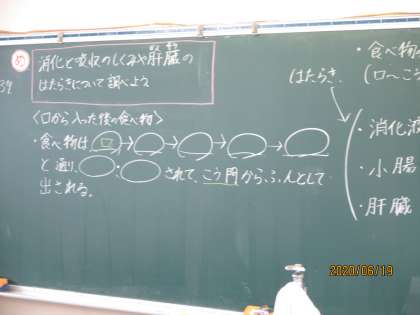 め
消化と吸収のしくみや肝臓の
はたらきについて調べよう
〈口から入った後の食べ物〉
・食べ物は 口 → → → →
と通り、 ・ されて、こう門から、ふんとして
出される。
はたらき
・食べ物
(口へ
・消化液
・小腸
・肝臓
2020/06/19